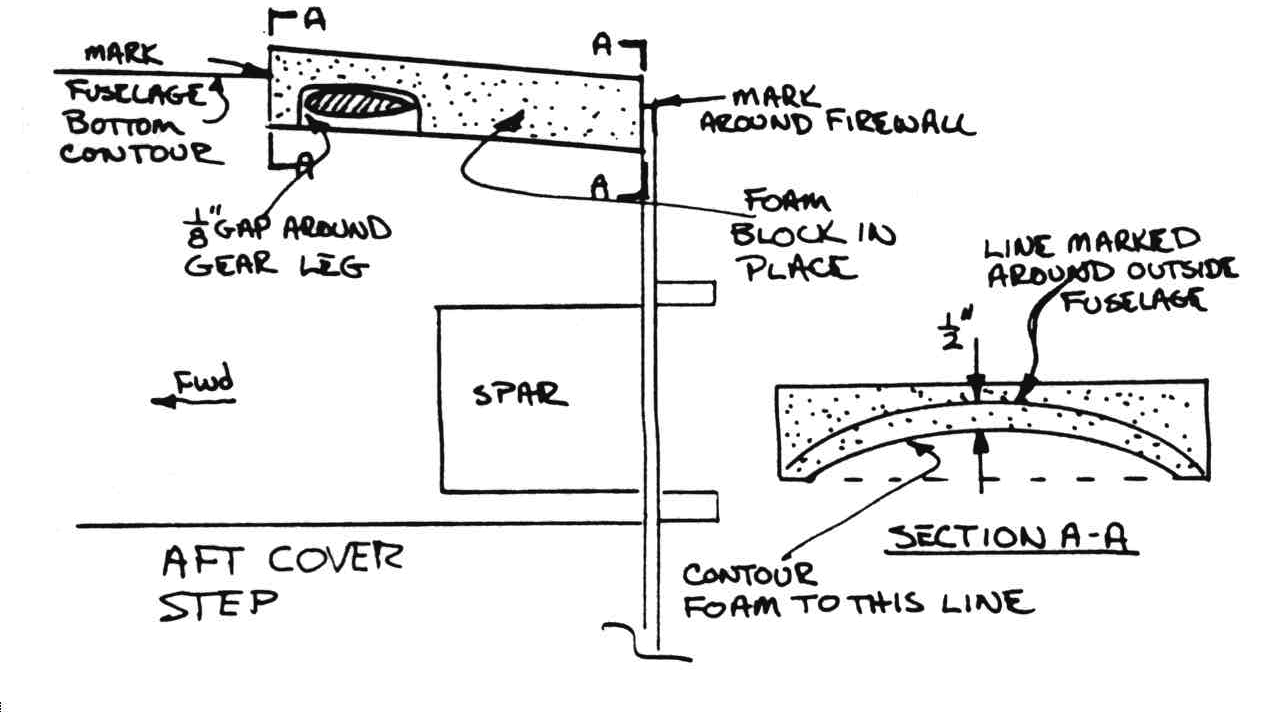 A
A
MARK
FUSELAGE
BOTTOM
CONTOUR
MARK
AROUND FIREWALL
A
A
1/8" GAP AROUND
GEAR LEG
FOAM
BLOCK IN
PLACE
LINE MARKED
AROUND OUTSIDE
FUSELAGE
1/2"
Fwd
SPAR
SECTION A-A
AFT COVER
STEP
CONTOUR
FOAM TO THIS LINE